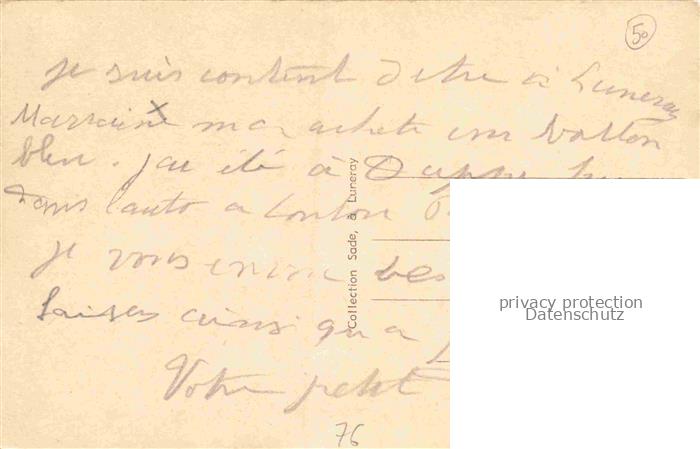 50
je suis content d etre a Luneray
Marraine m a acheté un ballon
bleu. j ai été à Dieppe
dans l auto a tonton
je vous envoie des
baisers ainsi qu a
Votre petit
Collection Sade, à Luneray
76
privacy protection
Datenschutz